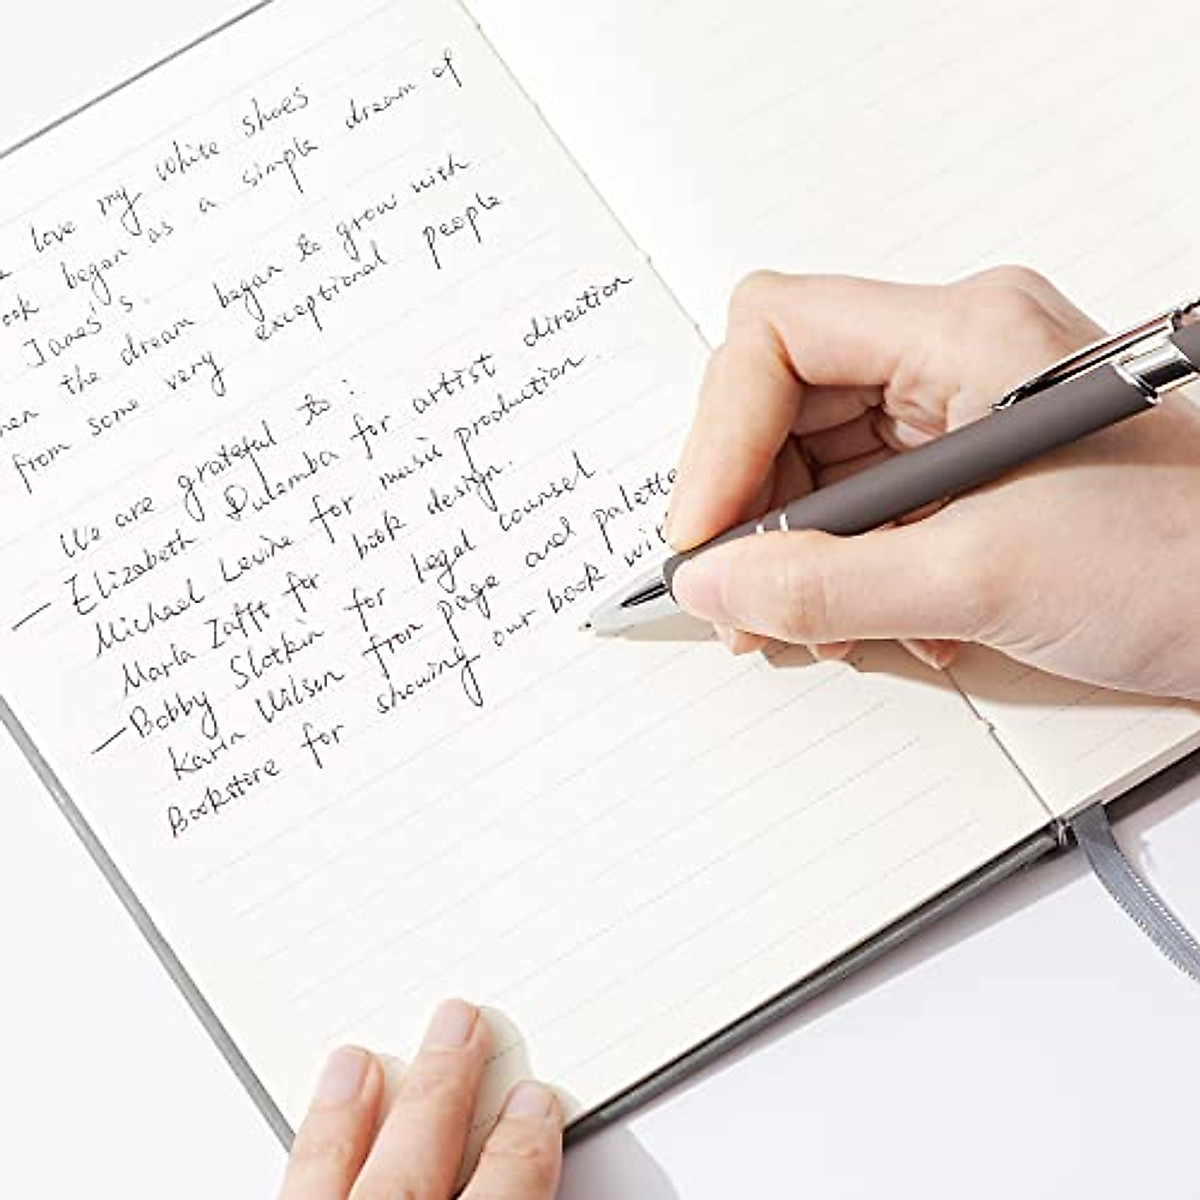 love my white shoes
ook began as a simple dream of
James's.
hen the dream began to grow with
from some very exceptional people
We are grateful to:
— Elizabeth Dulemba for artist direction
Michael Levine for music production.
Marla Zafft for book design.
— Bobby Slotkin for legal counsel.
Karla Wilson from page and palette
Bookstore for showing our book wi